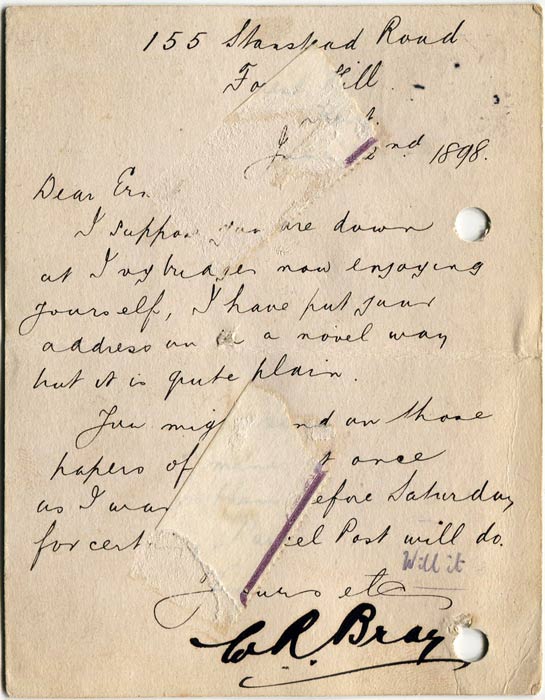 155 Stanstead Road
Fo ill
2nd 1898.
Dear Ern
I suppose you are down
at Ivybridge now enjoying
yourself, I have put your
address on in a novel way
but it is quite plain.
You mig nd on those
papers of t once
as I wan efore Saturday
for cert cel Post will do.
Will it
Yours etc
W R. Bray